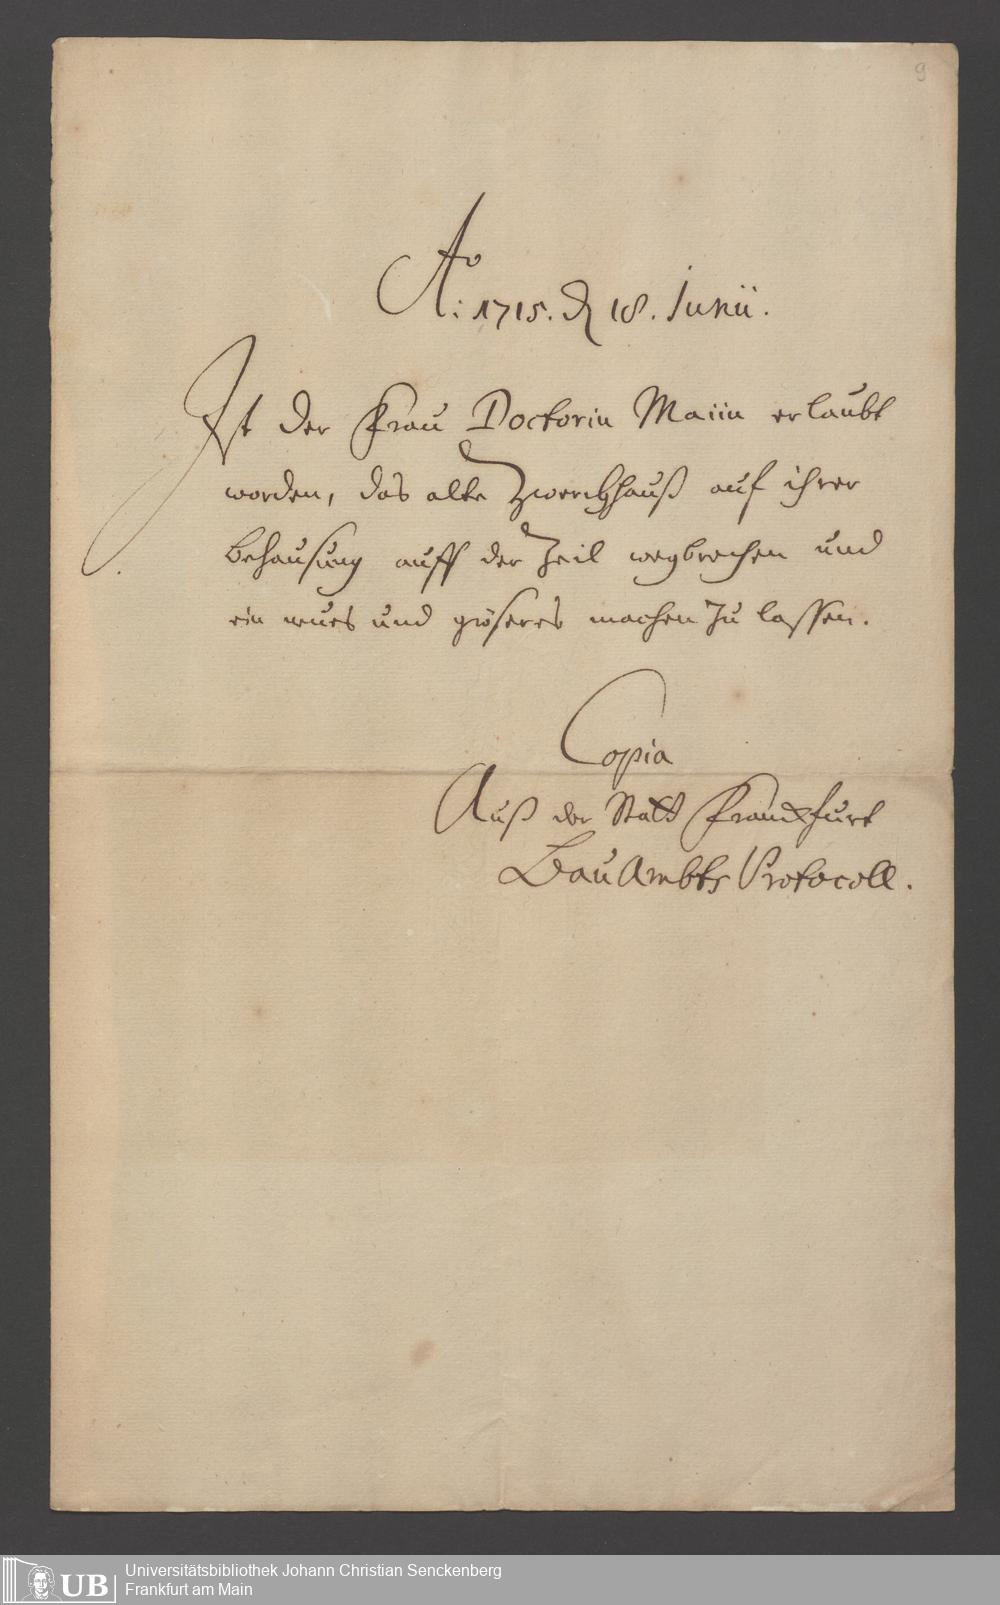 9
Ao: 1715. d 18. Junii.
Ist der Frau Doctorin Maiin erlaubt
worden, das alte Zwerchhauß auf ihrer
behausung auff der Zeil wegbrechen und
ein neues und gröseres machen zu lassen.
Copia
Auß der Statt Franckfurt
Bau Ambts Protocoll.
UB Universitätsbibliothek Johann Christian Senckenberg
Frankfurt am Main